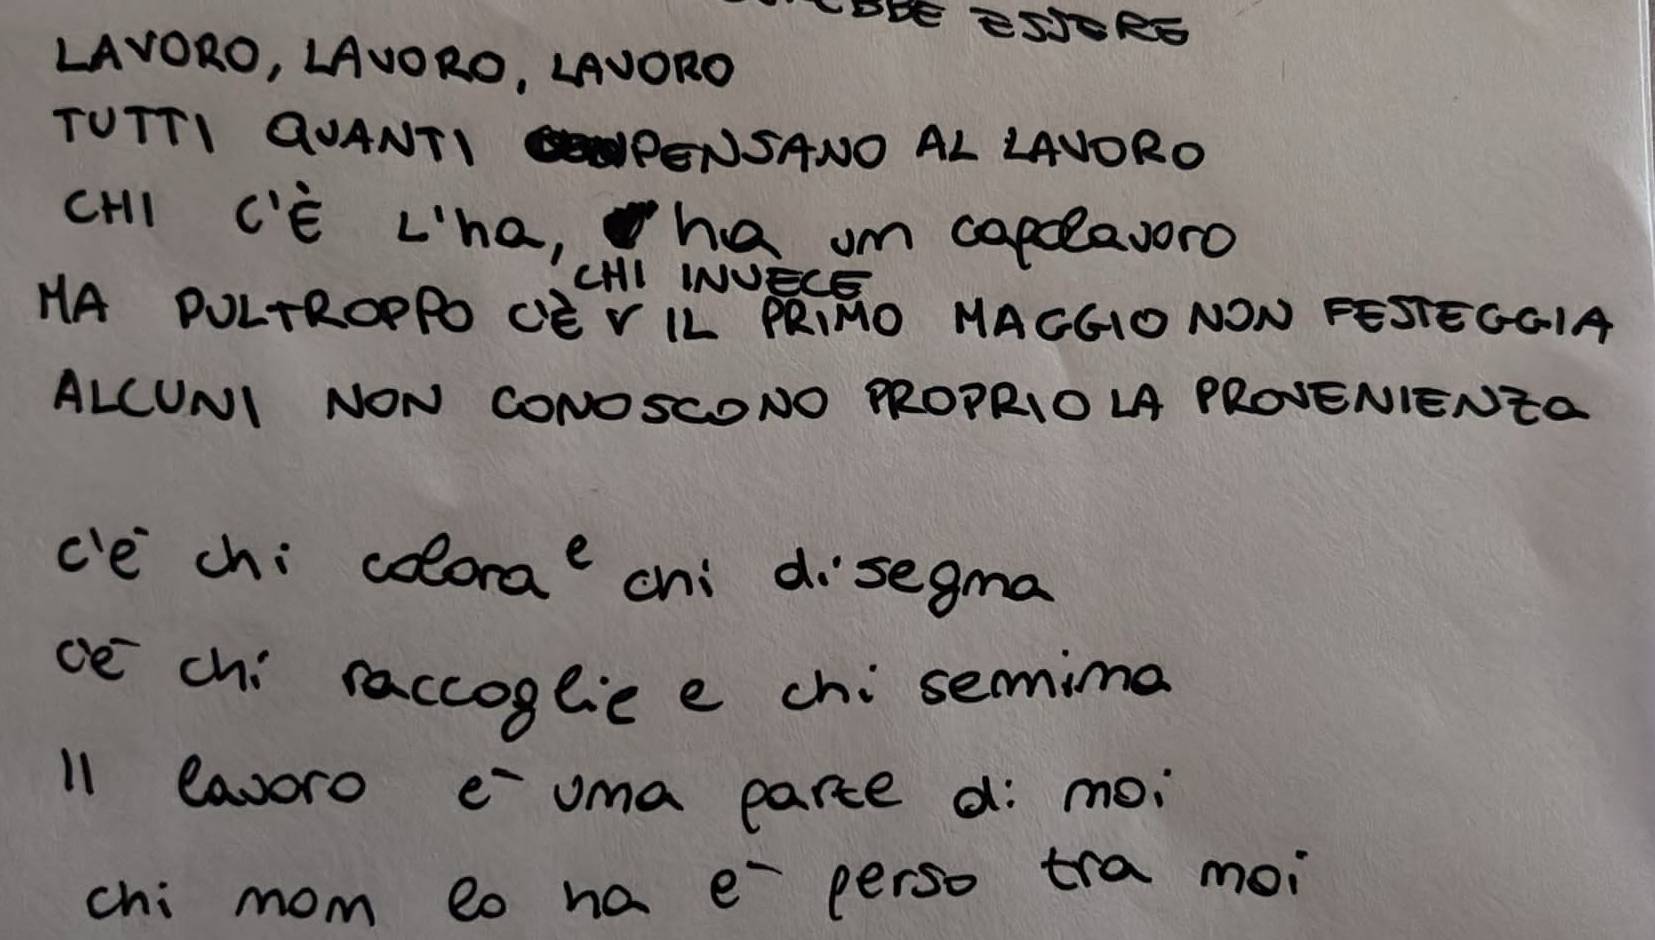 ESSERE
LAVORO, LAVORO, LAVORO
TUTTI QUANTI PENSANO AL LAVORO
CHI C'È L'ha, ha un capolavoro
CHI INVECE
MA PULTROPPO C'È IL PRIMO MAGGIO NON FESTEGGIA
ALCUNI NON CONOSCONO PROPRIO LA PROVENIENZA
c'è chi colora e chi disegna
c'è chi raccoglie e chi semina
Il lavoro è una parte di noi
chi non lo ha è perso tra noi